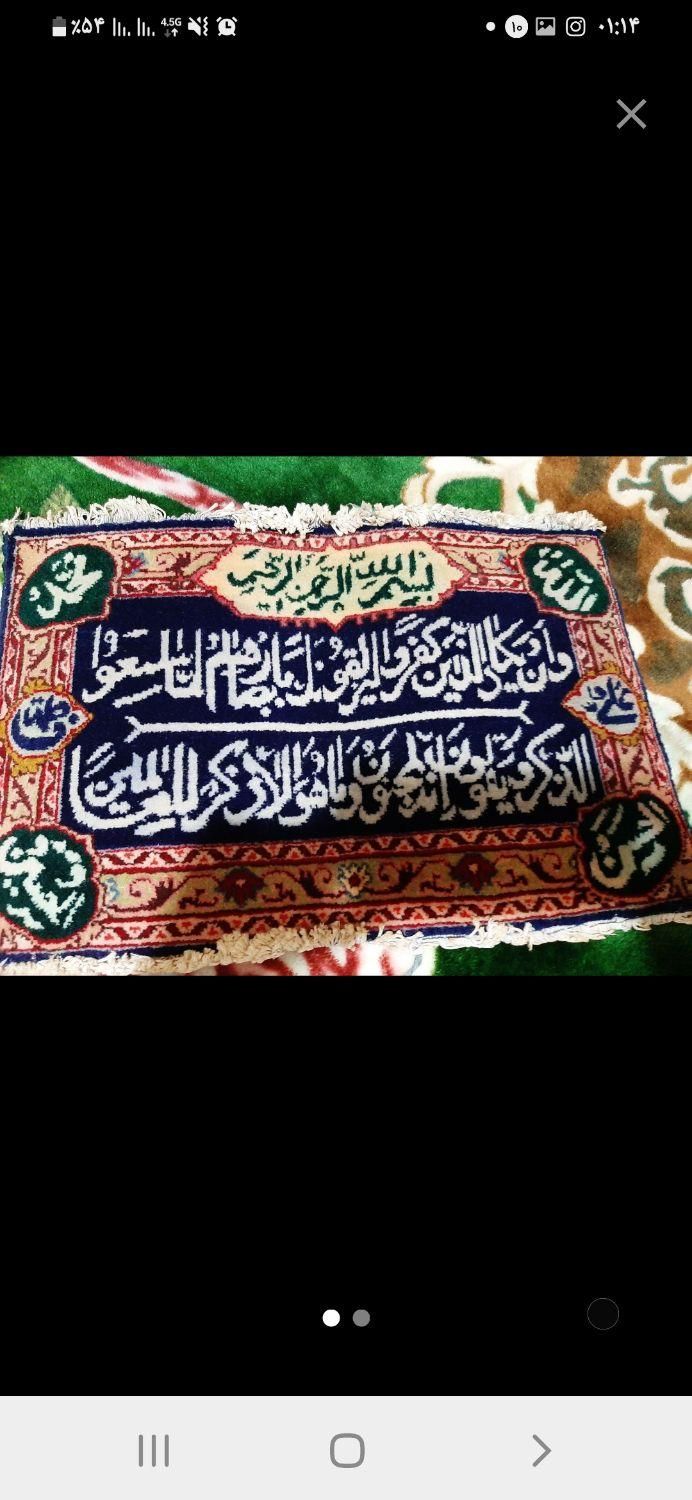 ٪۵۴ 4.5G ۱۰ ۰۱:۱۴
بسم الله الرحمن الرحیم
الله
محمد
وان یکاد الذین کفروا لیزلقونک بابصارهم لما سمعوا
علی
الذکر ویقولون انه لمجنون وما هو الا ذکر للعالمین